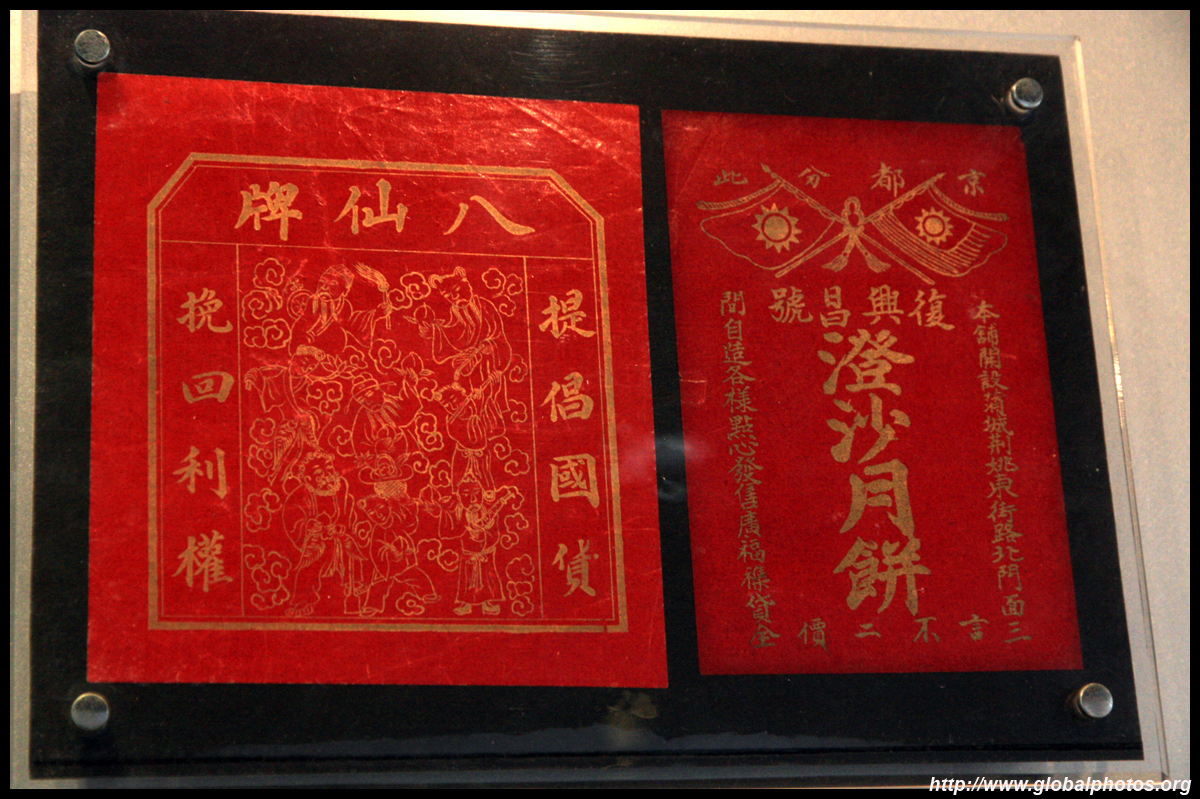 八仙牌
提倡國貨
挽回利權
京都分此
復興昌號
本舖開設蒲城荆姚東街路北門面三
澄沙月餅
間自造各樣點心發售廣福襍貨全
言不二價
http://www.globalphotos.org